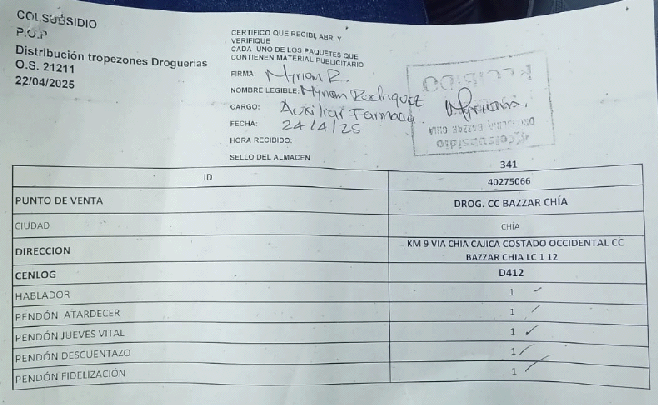 COLSUBSIDIO
P.O.P
Distribución tropezones Droguerias
O.S. 21211
22/04/2025
CERTIFICO QUE RECIBI, ABRI Y
VERIFIQUE
CADA UNO DE LOS PAQUETES QUE
CONTIENEN MATERIAL PUBLICITARIO
FIRMA Myriam R.
NOMBRE LEGIBLE: Myriam Rodriguez
CARGO: Auxiliar Farmacia
FECHA: 24/4/25
HORA RECIBIDO:
SELLO DEL ALMACEN
RECIBIDO
DROGUERIA BAZZAR CHIA
Colsubsidio
341
ID 40275066
PUNTO DE VENTA DROG. CC BAZZAR CHÍA
CIUDAD CHÍA
DIRECCION KM 9 VIA CHIA CAJICA COSTADO OCCIDENTAL CC
BAZZAR CHIA LC 1 12
CENLOG D412
HABLADOR 1
PENDÓN ATARDECER 1
PENDÓN JUEVES VITAL 1
PENDÓN DESCUENTAZO 1
PENDIÓN FIDELIZACIÓN 1